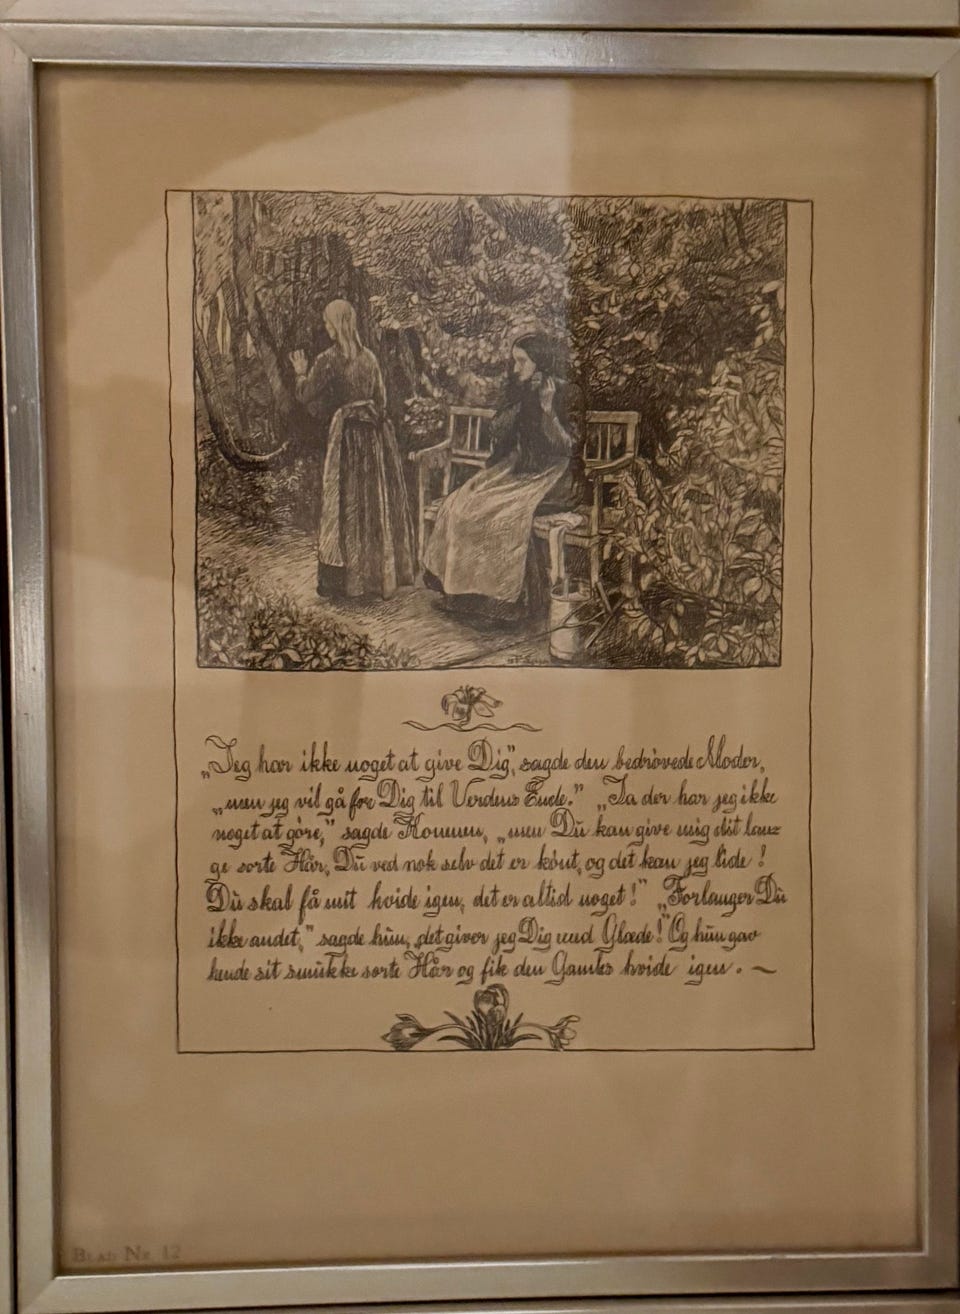 „Jeg har ikke noget at give Dig,” sagde den bedrøvede Moder,
„men jeg vil gå for Dig til Verdens Ende.” „Ja der har jeg ikke
noget at göre,” sagde Konnen, „men Du kan give mig dit lan=
ge sorte Hår, Du ved nok selv det er könt, og det kan jeg lide!
Du skal få mit hvide igen, det er altid noget!” „Forlanger Du
ikke andet,” sagde hun, „det giver jeg Dig med Glæde!” Og hun gav
hende sit smukke sorte Hår og fik den Gamles hvide igen. ~
BLAD NR. 12